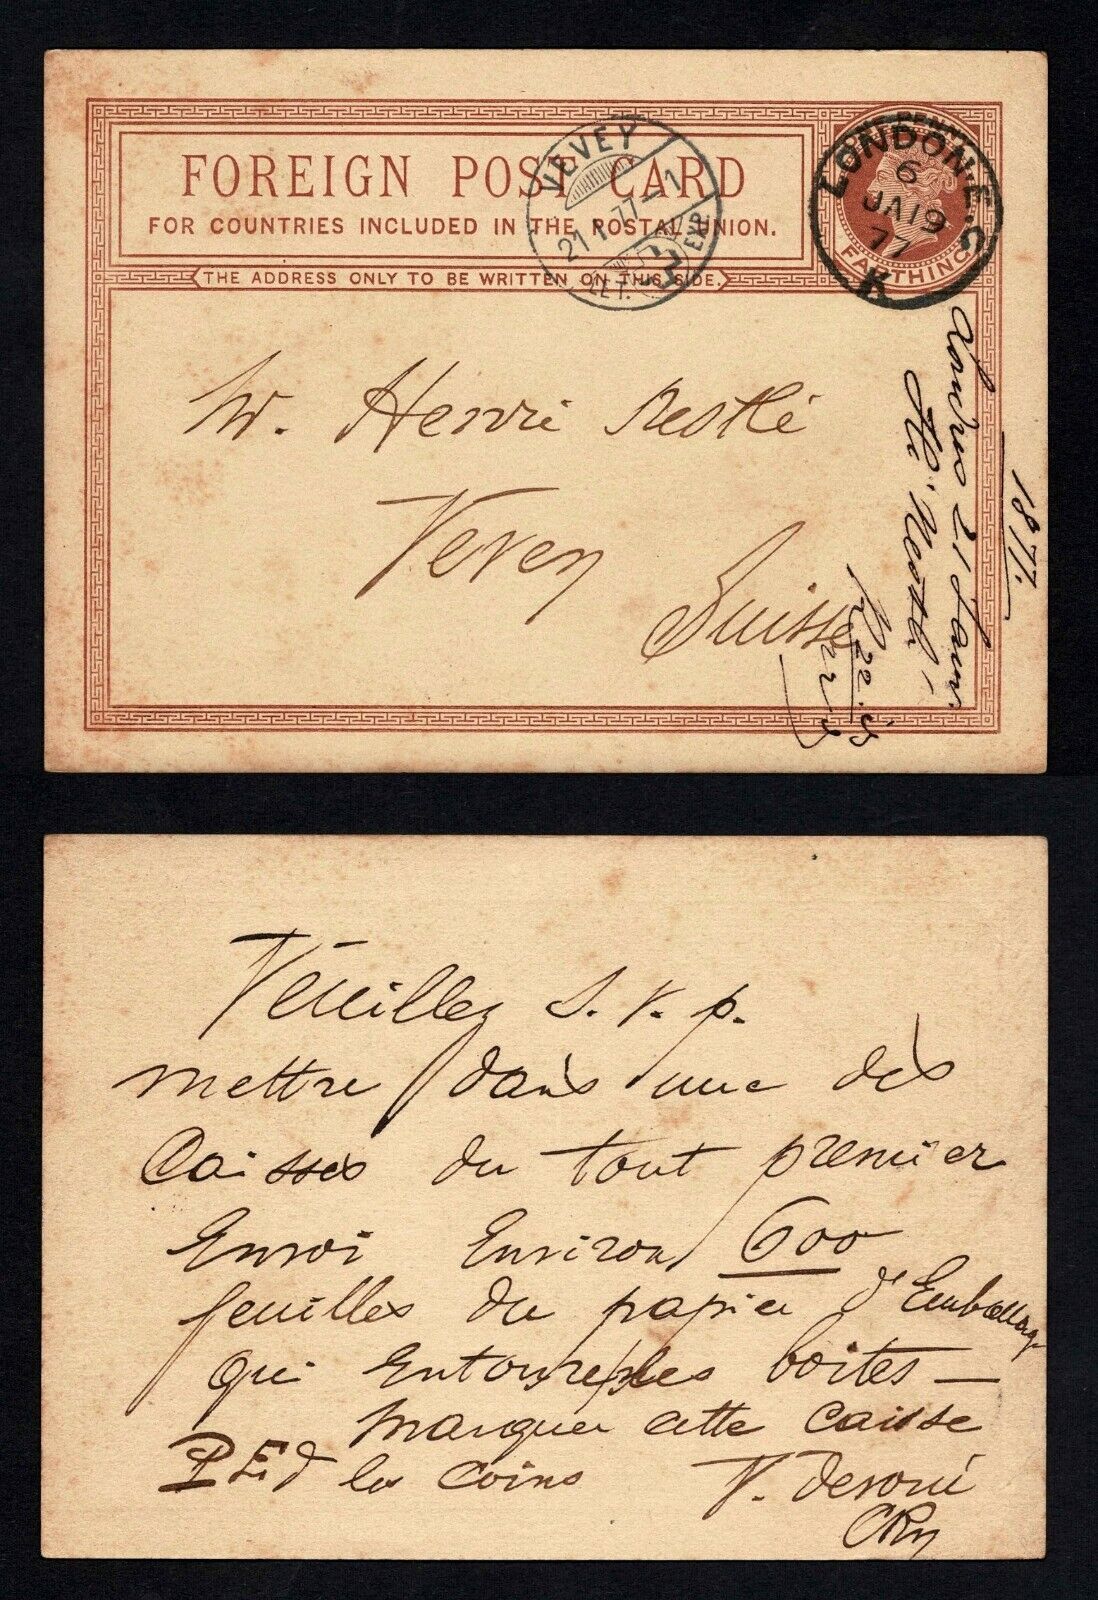 FOREIGN POST CARD
FOR COUNTRIES INCLUDED IN THE POSTAL UNION.
THE ADDRESS ONLY TO BE WRITTEN ON THIS SIDE.
PENNY
FARTHING
LONDON·E.C
6
JA19
77
K
VEVEY
21 1 77–1
LET. EXP.
M. Henri Nestlé
Vevey
Suisse
1877.
Londres 21 Janv.
Hri Nestlé
22
Veuillez S. V. p.
mettre dans une des
Caisses du tout premier
Envoi Environ 600
feuilles du papier d'Emballag
qui Entoure les boites —
Marquer cette caisse
les coins
V. devoué